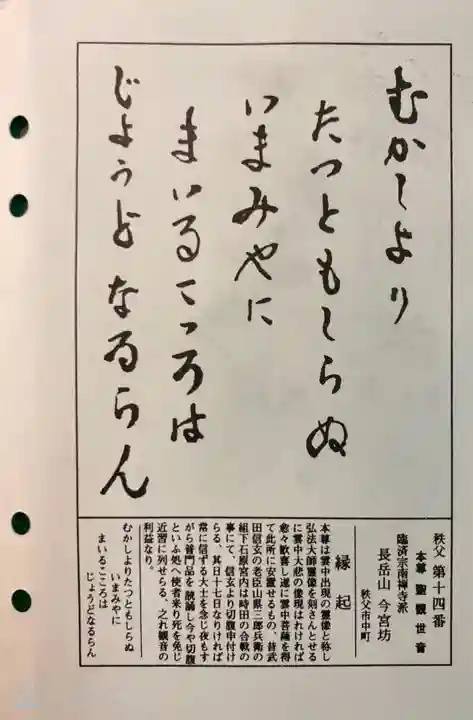 むかしより
たつともしらぬ
いまみやに
まいるこころは
じょうどなるらん
秩父 第十四番
本尊 聖観世音
臨済宗南禅寺派
長岳山 今宮坊
秩父市中町
縁起
本尊は雲中出現の霊像と称し
弘法大師霊像を刻さんとせる
に雲中大悲の像現はれければ
愈々歓喜し遂に雲中菩薩を得
て此所に安置せるもの、昔武
田信玄の老臣山県三郎兵衛の
組下石原宮内は時田の合戦の
事にて、信玄より切腹申付け
らる、其日十七日なりければ
常に信ずる大士を念じ夜もす
がら普門品を読誦し今や切腹
といふ処へ使者来り死を免じ
近習に列せらる、之れ観音の
利益なり。
むかしよりたつともしらぬ
いまみやに
まいるこころは
じょうどなるらん